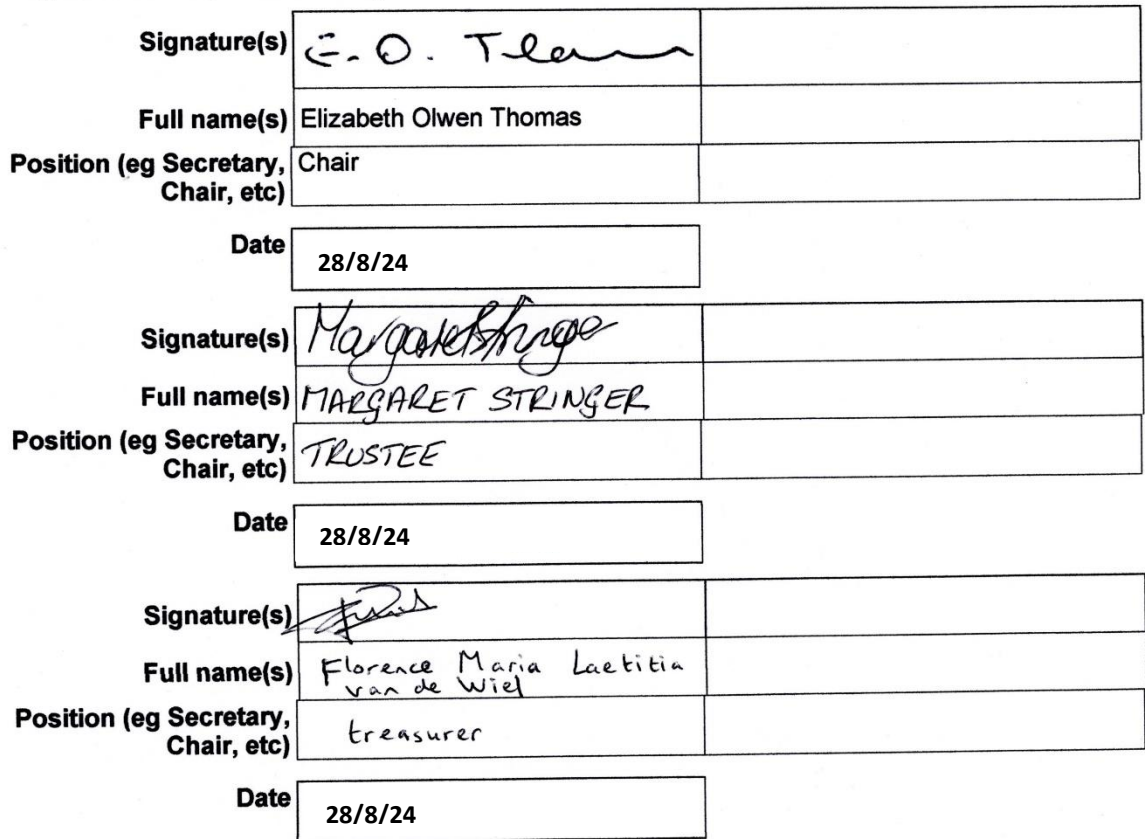 Signature(s) E. O. Thomas
Full name(s) Elizabeth Olwen Thomas
Position (eg Secretary, Chair
Chair, etc)
Date
28/8/24
Signature(s) Margaret Stringer
Full name(s) MARGARET STRINGER
Position (eg Secretary, TRUSTEE
Chair, etc)
Date
28/8/24
Signature(s)
Full name(s) Florence Maria Laetitia
van de Wiel
Position (eg Secretary, treasurer
Chair, etc)
Date
28/8/24